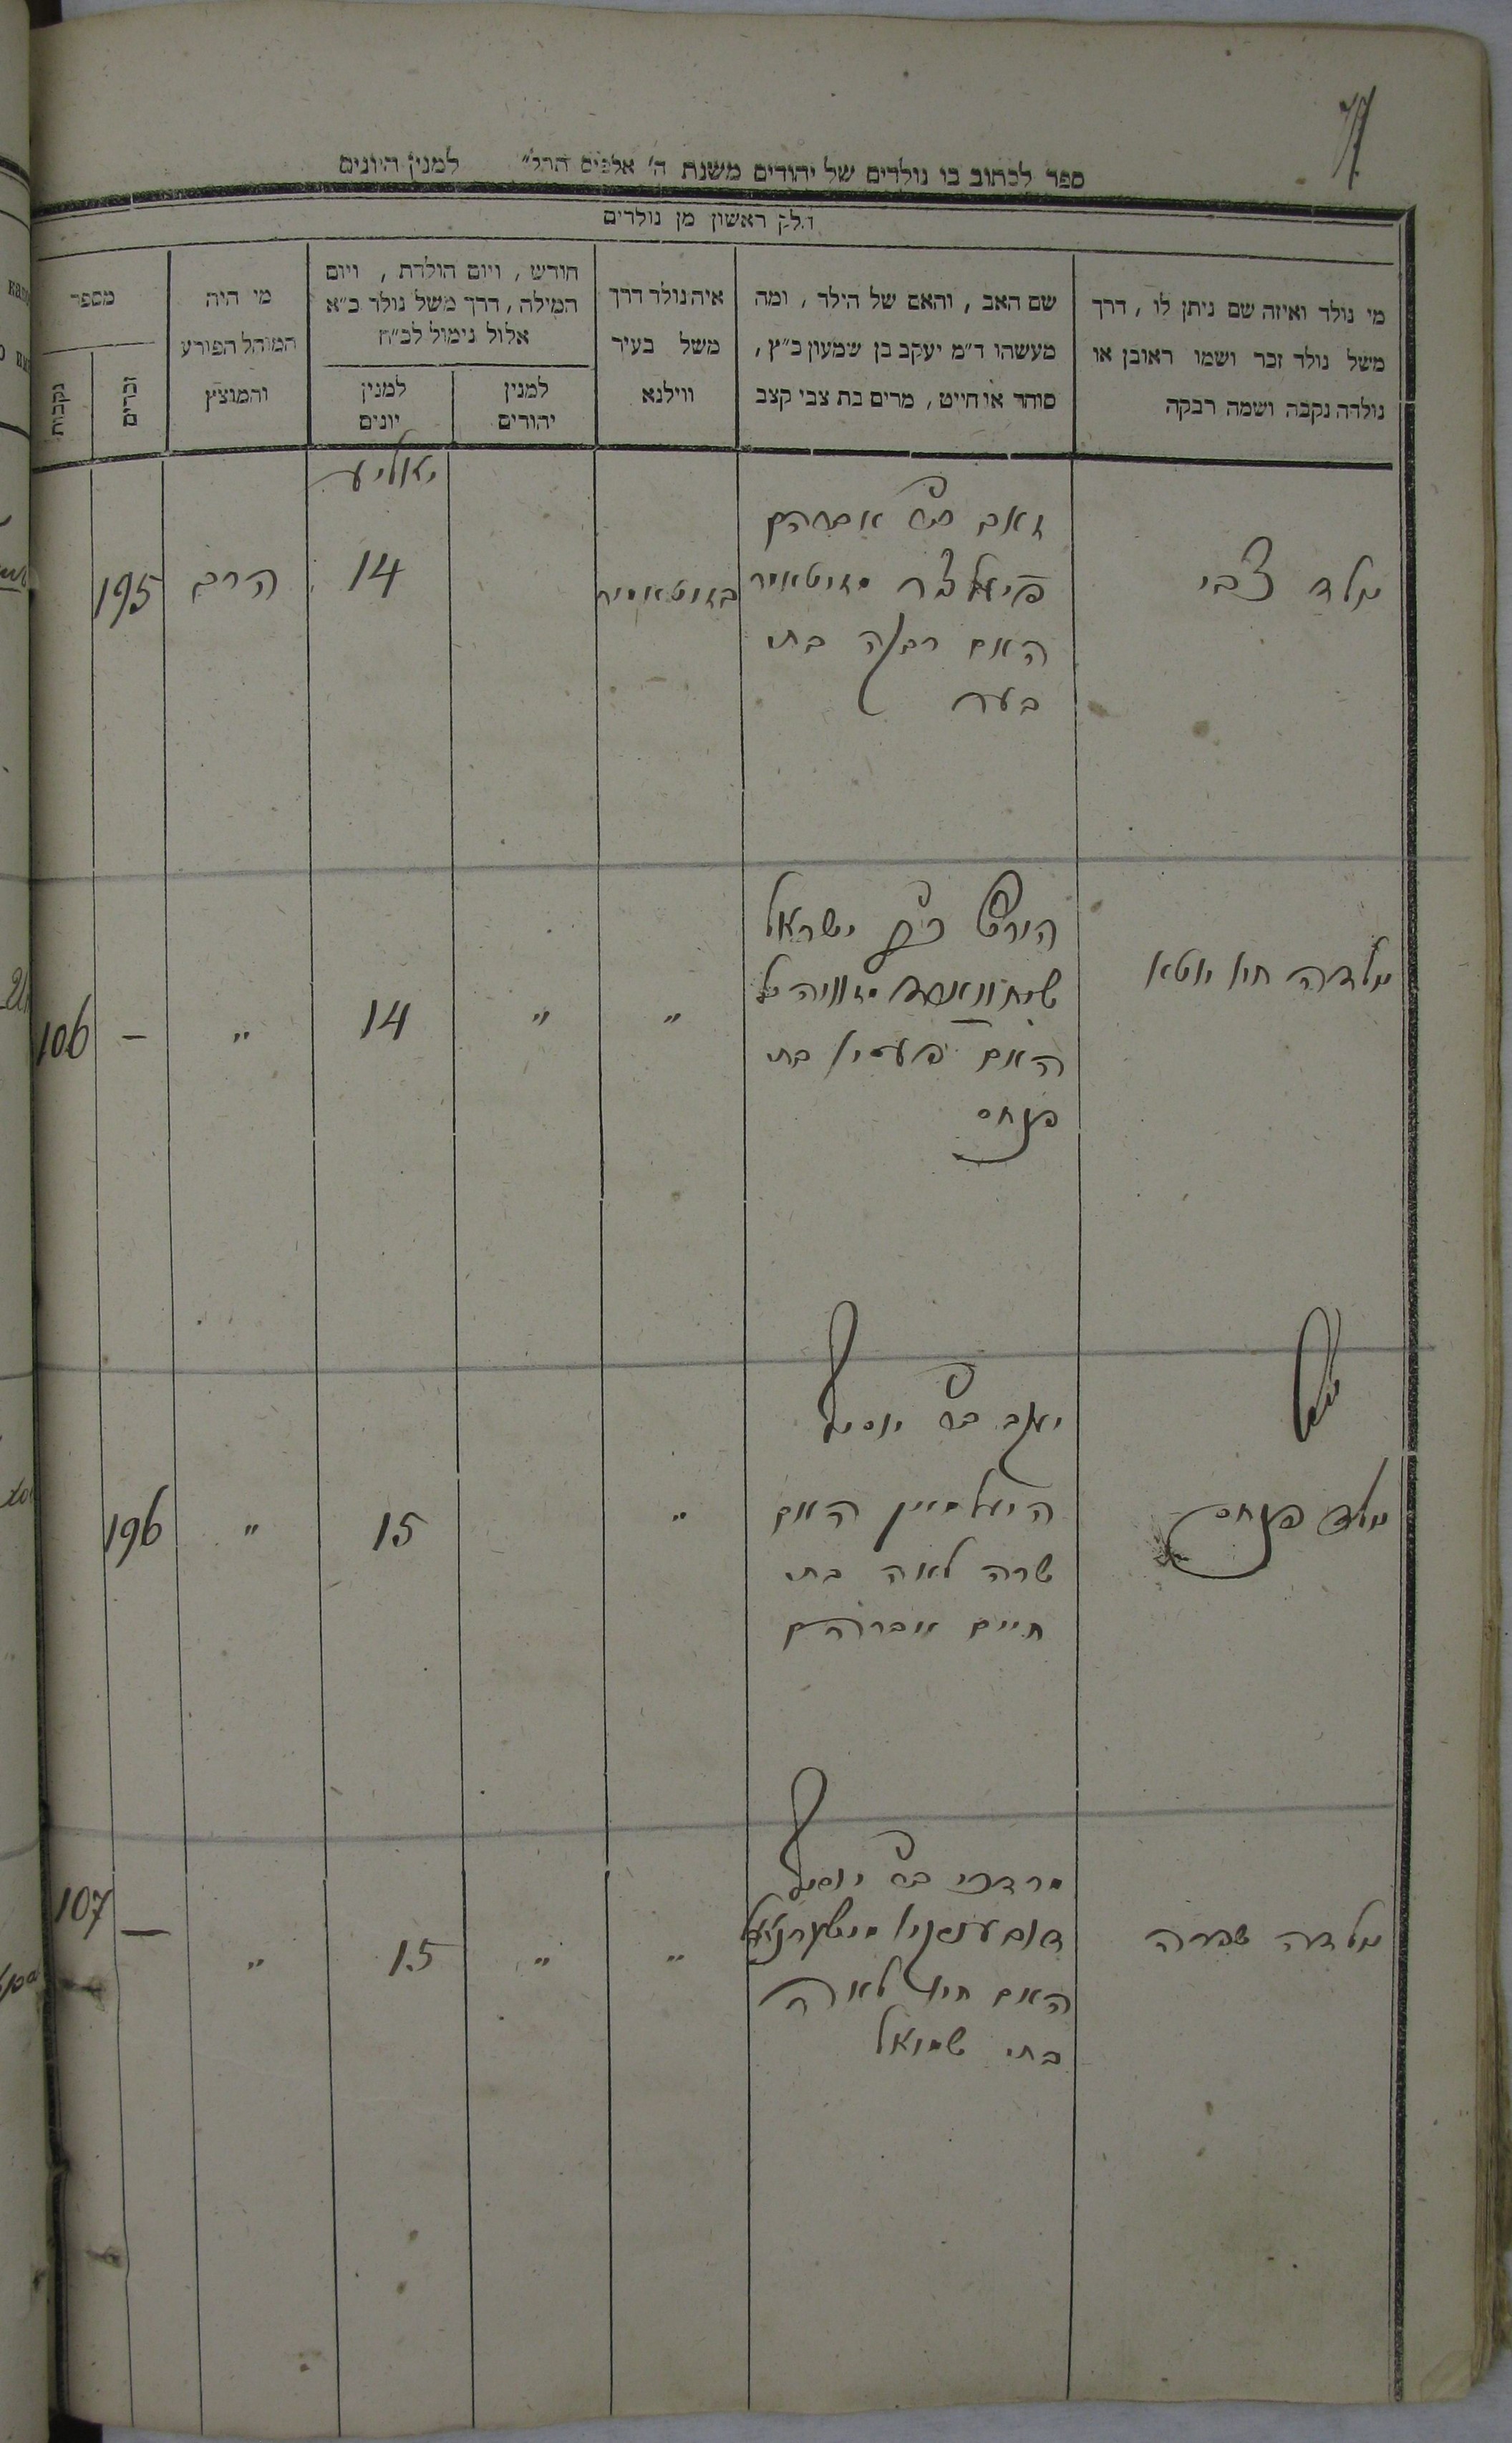 77
ספר לכתוב בו נולדים של יהודים משנת ה' אלפים תרל" למנין היונים
חלק ראשון מן נולדים
מי נולד ואיזה שם ניתן לו, דרך
משל נולד זכר ושמו ראובן או
נולדה נקבה ושמה רבקה
שם האב, והאם של הילד, ומה
מעשהו ד"מ יעקב בן שמעון כ"ץ,
סוחר או חייט, מרים בת צבי קצב
איה נולד דרך
משל בעיר
ווילנא
חודש, ויום הולדת, ויום
המילה, דרך משל נולד כ"א
אלול נימול לכ"ח
למנין
יהודים
למנין
יונים
מי היה
המוהל הפורע
והמוצץ
מספר
זכרים
נקבות
יאוליע
נולד צבי
זאב ב"ר אברהם
האם רבקה בת
בער
בזיטאמיר
14
הרב
195
נולדה חיה יוטא
הירש ב"ר ישראל
האם בת
פנחס
"
"
14
"
—
106
נולד פנחס
יעקב ב"ר יוסף
האם
שרה לאה בת
חיים אברהם
"
15
"
196
נולדה שפרה
מרדכי ב"ר יוסף
האם חיה לאה
בת שמואל
"
"
15
"
—
107